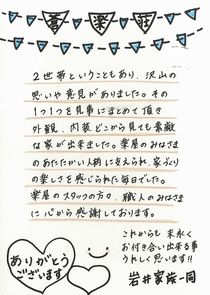 2世帯ということもあり、沢山の
思いや意見がありました。その
1つ1つを見事にまとめて頂き
外観、内装どこから見ても素敵
な家が出来ました。楽屋のみなさま
のあたたかい人柄に支えられ、家づくり
の楽しさを感じられた毎日でした。
楽屋のスタッフの方々、職人のみなさま
に心から感謝しております。
これからも末永く
お付き合い出来る事
うれしく思います!!
岩井家族一同
ありがとう
ございます!!